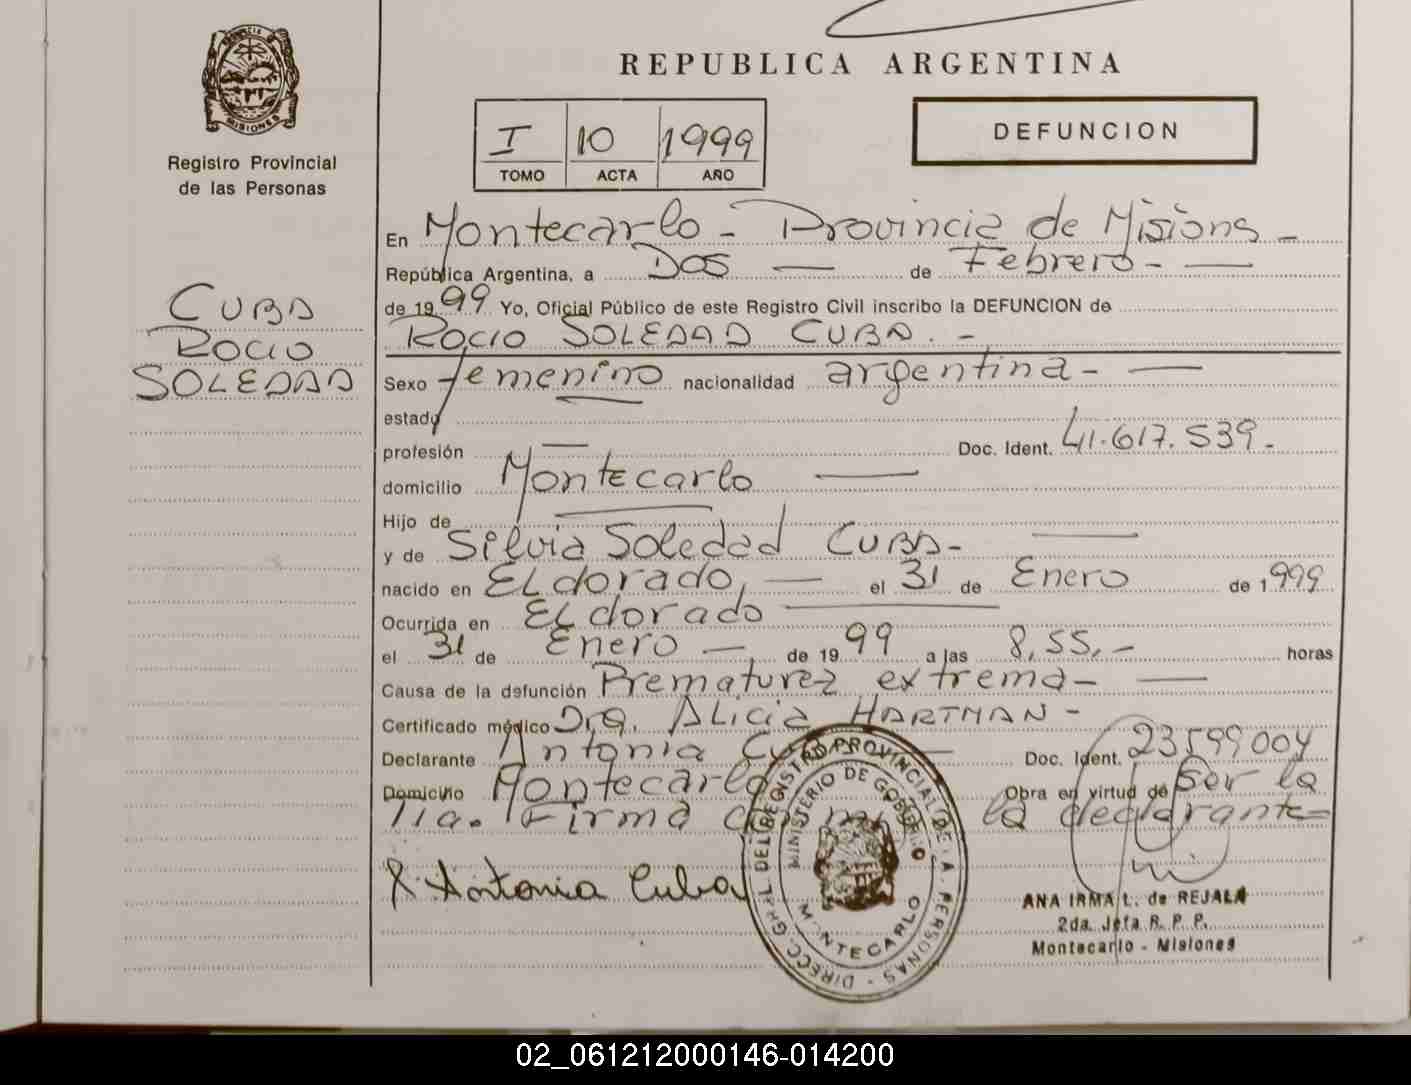 REPUBLICA ARGENTINA
MISIONES
Registro Provincial
de las Personas
I 10 1999
TOMO ACTA AÑO
DEFUNCION
CUBA
ROCIO
SOLEDAD
En Montecarlo - Provincia de Misions -
República Argentina, a Dos — de Febrero - —
de 1999 Yo, Oficial Público de este Registro Civil inscribo la DEFUNCION de
ROCIO SOLEDAD CUBA. -
Sexo femenino nacionalidad argentina - —
estado
profesión — Doc. Ident. 41.617.539 -
domicilio Montecarlo —
Hijo de —
y de Silvia Soledad CUBA - —
nacido en ELdorado, — el 31 de Enero de 1999
Ocurrida en ELdorado —
el 31 de Enero — de 1999 a las 8,55, - horas
Causa de la defunción Prematurez extrema - —
Certificado médico Dra. ALicia HARTMAN -
Declarante Antonia Cuba — Doc. Ident. 23599004
Domicilio Montecarlo Obra en virtud de Ser la
Tia. Firma la declarante =
Antonia Cuba
DIRECC. GRAL DEL REGISTRO PROVINCIAL DE LAS PERSONAS -
MINISTERIO DE GOBIERNO
MONTECARLO
ANA IRMA L. de REJALA
2da. Jefa R. P. P.
Montecarlo - Misiones
02_061212000146-014200